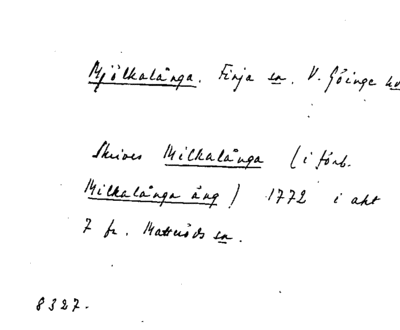 Mjölkalånga. Finja sn. V. Göinge
Skrives Milkalånga (i förb.
Milkalånga äng) 1772 i akt
7 fr. Matteröds sn.
8327.